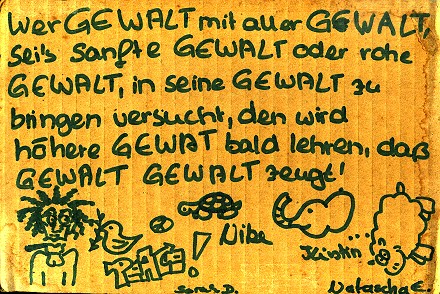 Wer GEWALT mit aller GEWALT,
sei's sanfte GEWALT oder rohe
GEWALT, in seine GEWALT zu
bringen versucht, den wird
höhere GEWAT bald lehren, daß
GEWALT GEWALT zeugt!
Niba
Kirstin ...
Natascha E.